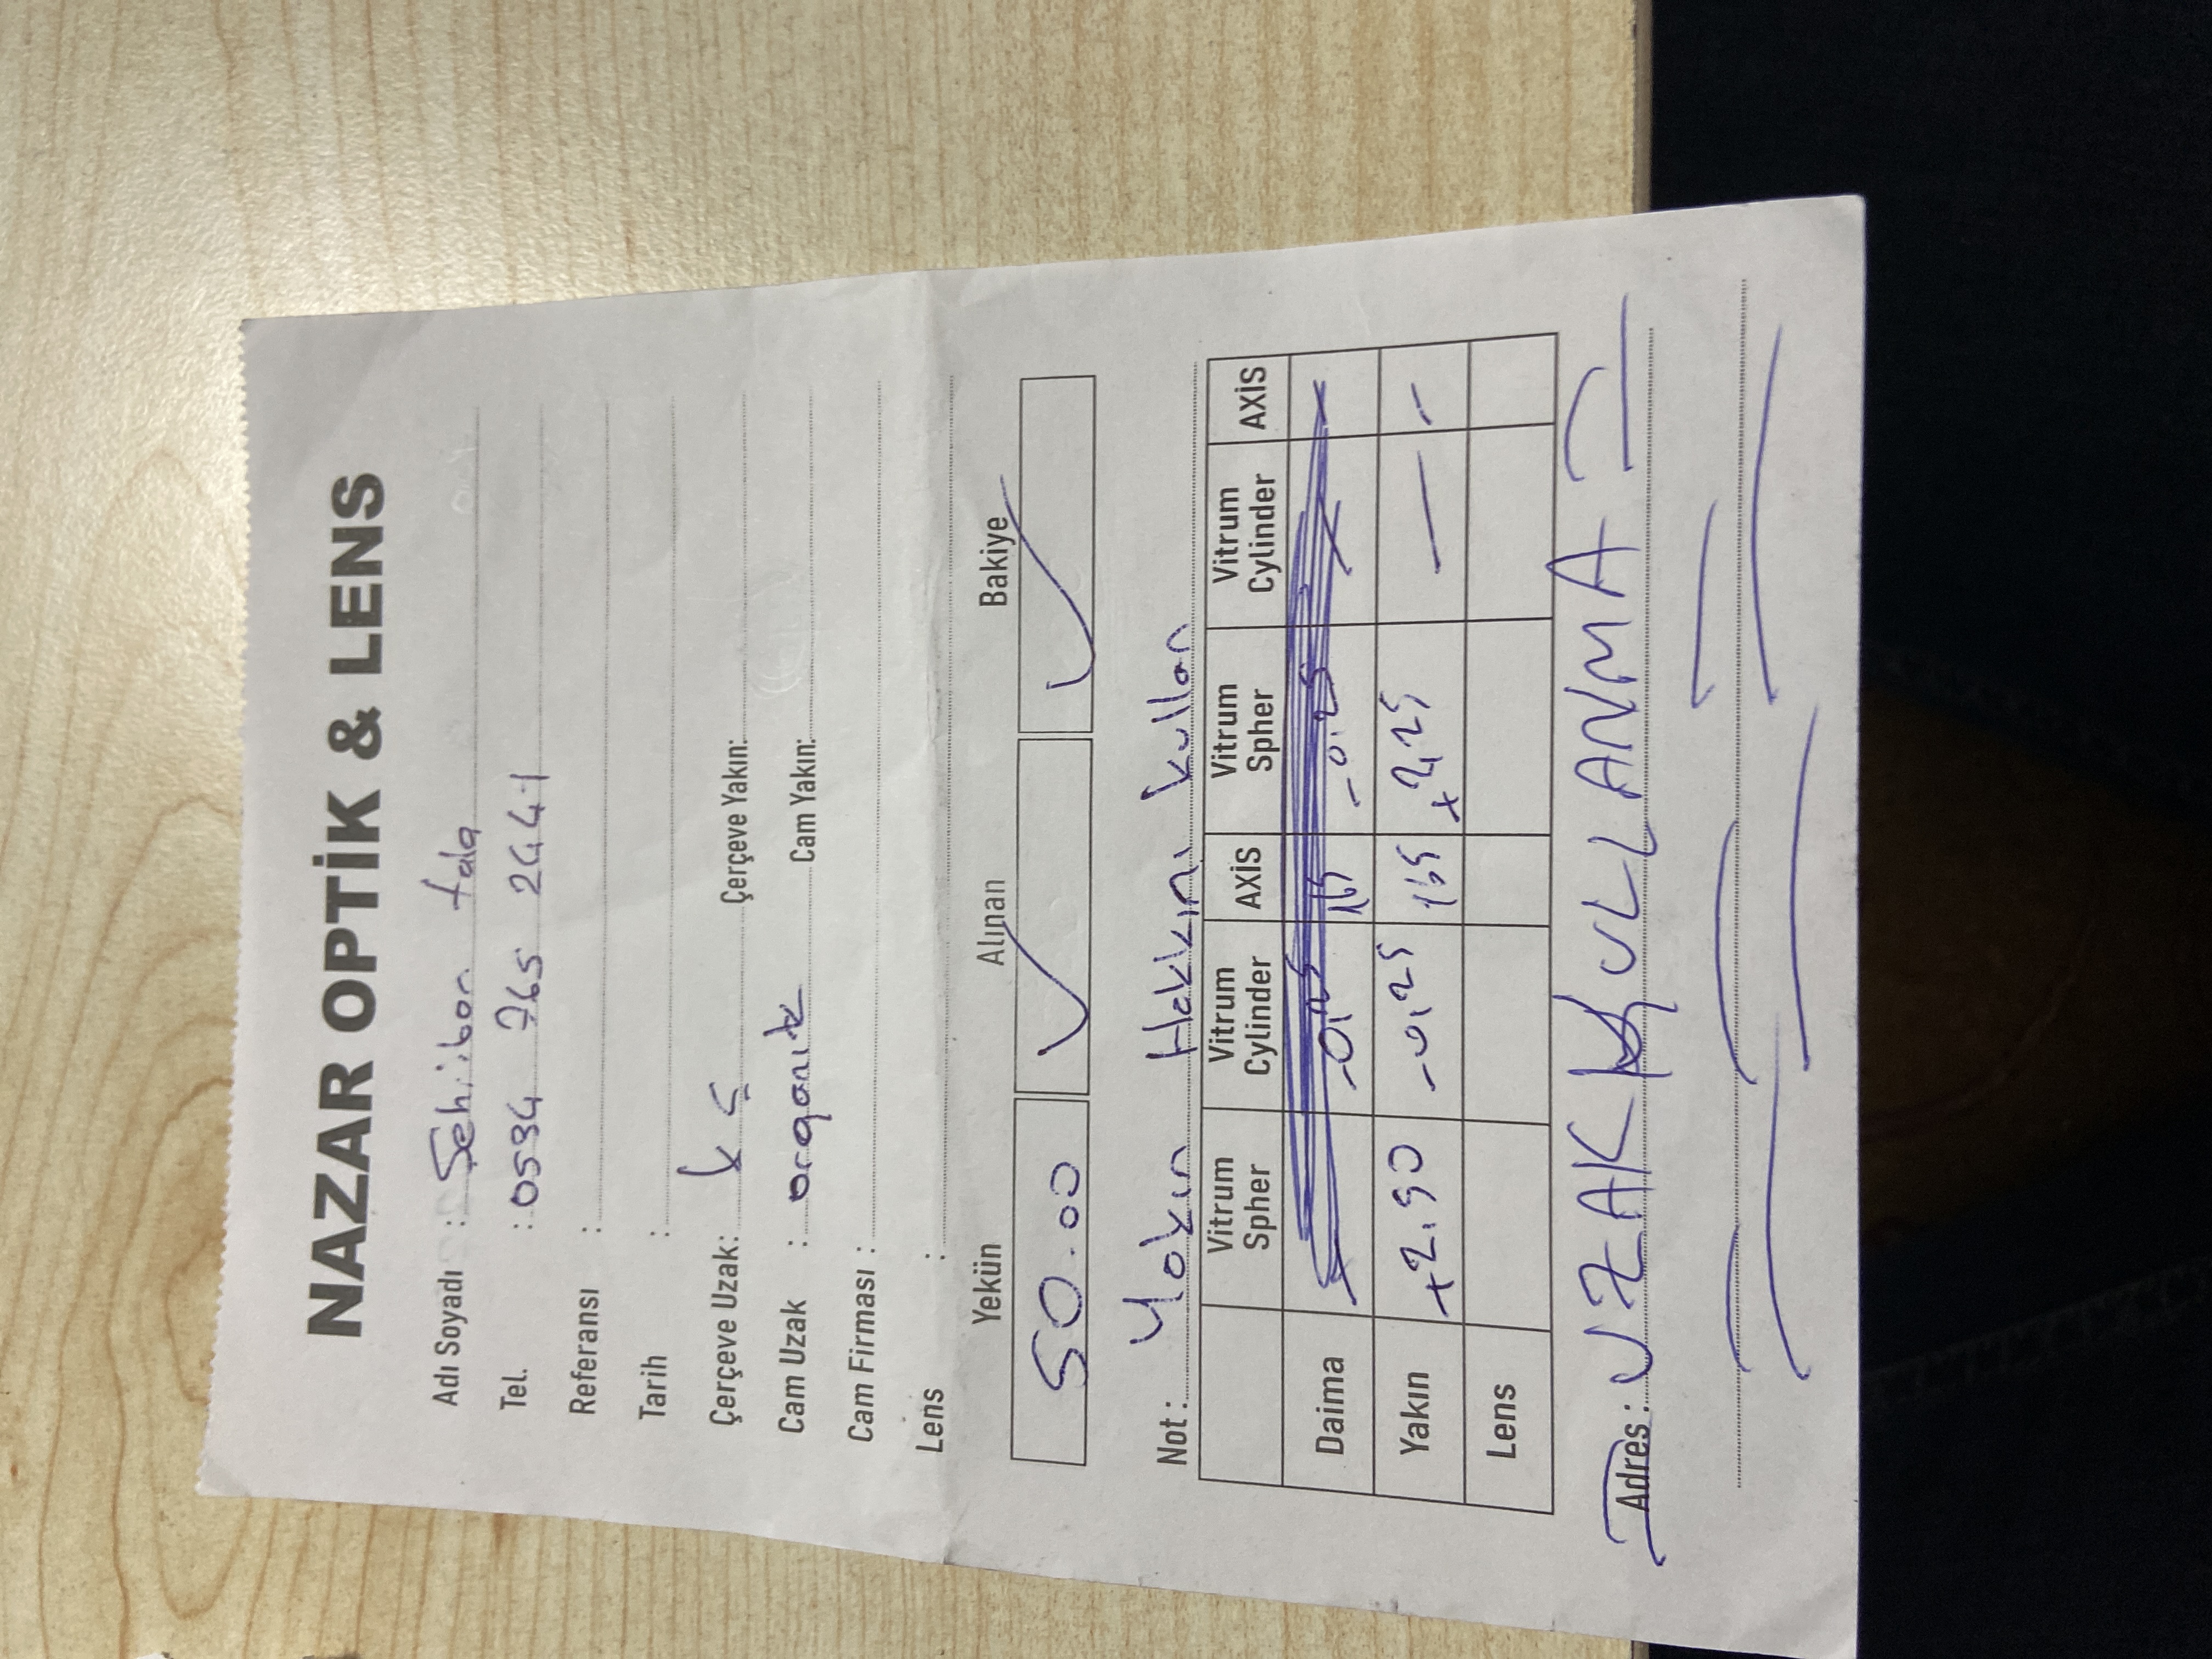 NAZAR OPTİK & LENS
Adı Soyadı : Şehriban tala
Tel. : 0534 765 2441
Referansı :
Tarih :
Çerçeve Uzak: kç Çerçeve Yakın:
Cam Uzak : organik Cam Yakın:
Cam Firması :
Lens :
Yekün Alınan Bakiye
50.00 ✓ ✓
Not : Yakın Hakkını kullan
Vitrum Spher Vitrum Cylinder AXİS Vitrum Spher Vitrum Cylinder AXİS
Daima — -0,25 165 -0,25 — —
Yakın +2,50 -0,25 165 +2,25 — —
Lens
Adres : UZAK KULLANMA